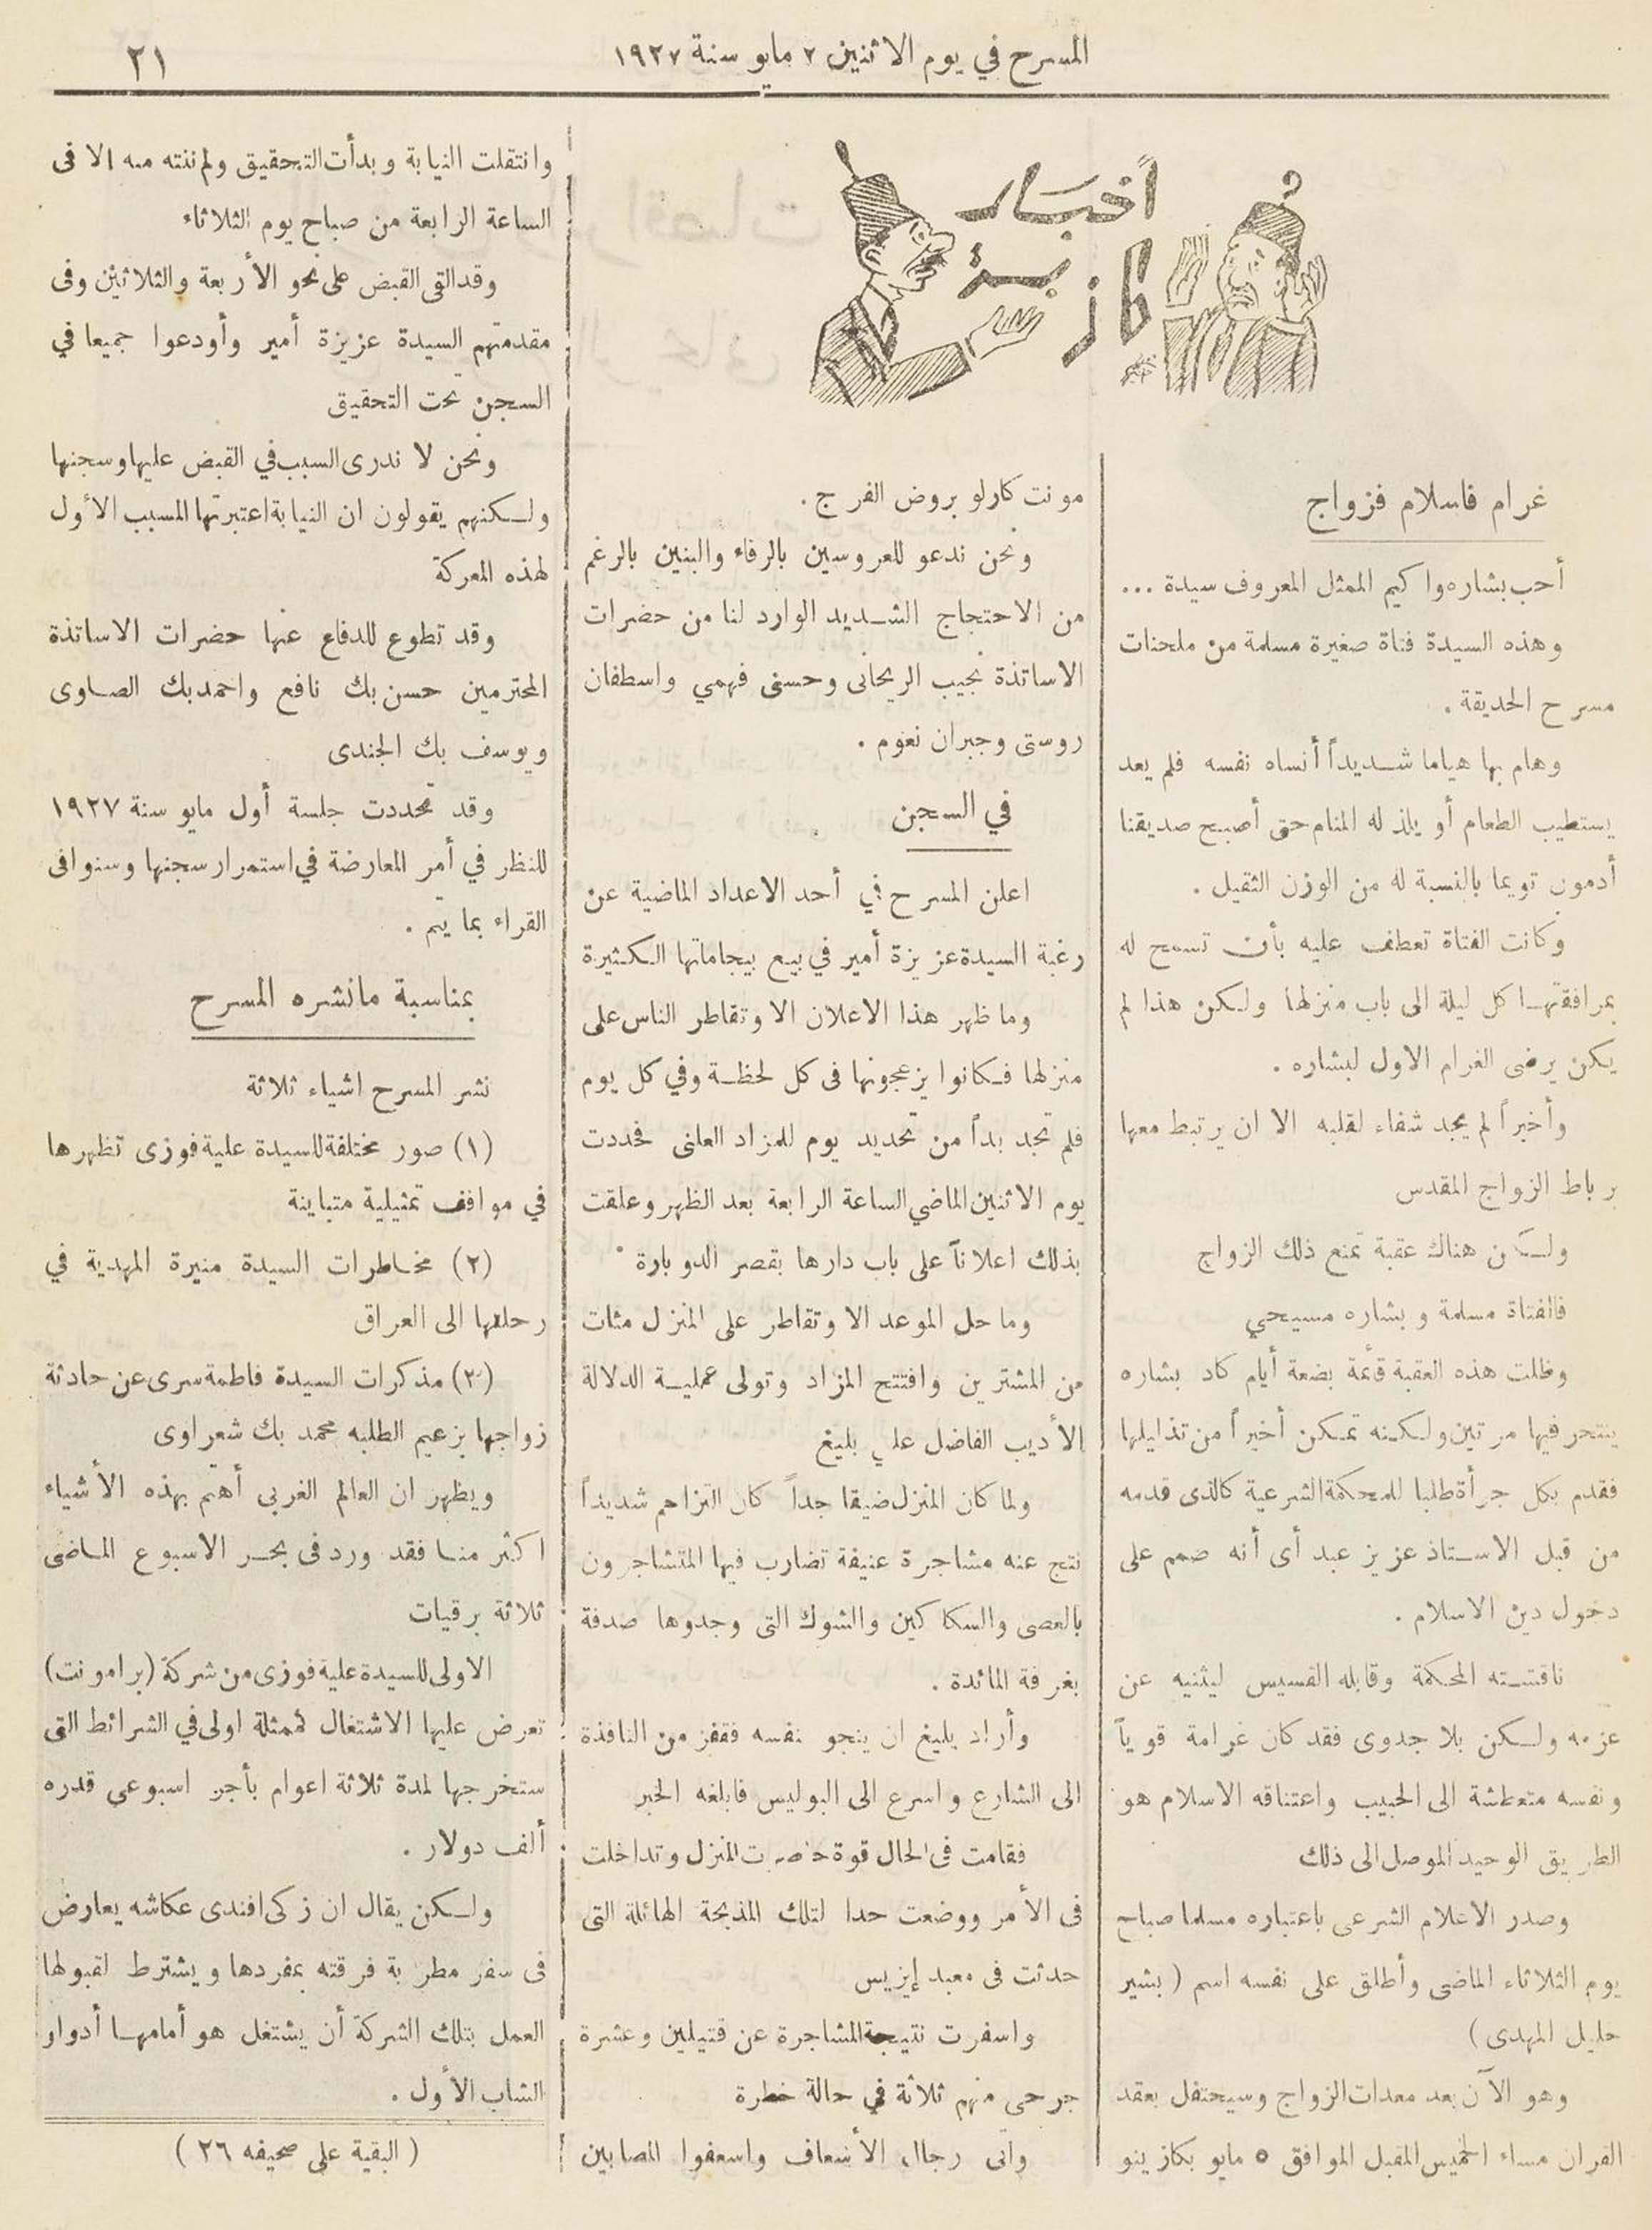 المسرح في يوم الاثنين ٢ مايو سنة ١٩٢٧
٢١
أخبار
كاز بسة
غرام فاسلام فزواج
أحب بشاره واكيم الممثل المعروف سيدة ...
وهذه السيدة فتاة صغيرة مسلمة من ملحنات
مسرح الحديقة .
وهام بها هياما شديداً أنساه نفسه فلم يعد
يستطيب الطعام أو يلذ له المنام حتى أصبح صديقنا
أدمون تويما بالنسبة له من الوزن الثقيل .
وكانت الفتاة تعطف عليه بأن تسمح له
بمرافقتها كل ليلة الى باب منزلها ولكن هذا لم
يكن يرضى الغرام الاول لبشاره .
وأخيراً لم يجد شفاء لقلبه الا ان يرتبط معها
برباط الزواج المقدس
ولكن هناك عقبة تمنع ذلك الزواج
فالفتاة مسلمة وبشاره مسيحي
وظلت هذه العقبة قائمة بضعة أيام كاد بشاره
ينتحر فيها مرتين ولكنه تمكن أخيراً من تذليلها
فقدم بكل جرأة طلبا للمحكمة الشرعية كالذى قدمه
من قبل الاستاذ عزيز عيد أى أنه صمم على
دخول دين الاسلام .
ناقشته المحكمة وقابله القسيس ليثنيه عن
عزمه ولكن بلا جدوى فقد كان غرامة قوياً
ونفسه متعطشة الى الحبيب واعتناقه الاسلام هو
الطريق الوحيد الموصل الى ذلك
وصدر الاعلام الشرعى باعتباره مسلما صباح
يوم الثلاثاء الماضى وأطلق على نفسه اسم ( بشير
خليل المهدى )
وهو الآن يعد معدات الزواج وسيحتفل بعقد
القران مساء الخميس المقبل الموافق ٥ مايو بكازينو
مونت كارلو بروض الفرج .
ونحن ندعو للعروسين بالرفاء والبنين بالرغم
من الاحتجاج الشديد الوارد لنا من حضرات
الاساتذة نجيب الريحانى وحسنى فهمي واسطفان
روستى وجبران نعوم .
في السجن
اعلن المسرح في أحد الاعداد الماضية عن
رغبة السيدة عزيزة أمير في بيع بيجاماتها الكثيرة
وما ظهر هذا الاعلان الا وتقاطر الناس على
منزلها فكانوا يزعجونها فى كل لحظة وفي كل يوم
فلم تجد بداً من تحديد يوم للمزاد العلنى فحددت
يوم الاثنين الماضي الساعة الرابعة بعد الظهر وعلقت
بذلك اعلاناً على باب دارها بقصر الدوبارة
وما حل الموعد الا وتقاطر على المنزل مئات
من المشترين وافتتح المزاد وتولى عملية الدلالة
الأديب الفاضل علي بليغ
ولما كان المنزل ضيقا جداً كان التزاحم شديداً
نتج عنه مشاجرة عنيفة تضارب فيها المتشاجرون
بالعصى والسكاكين والشوك التى وجدوها صدفة
بغرفة المائدة .
وأراد بليغ ان ينجو بنفسه فقفز من النافذة
الى الشارع واسرع الى البوليس فابلغه الخبر
فقامت فى الحال قوة حاصرت المنزل وتداخلت
فى الأمر ووضعت حدا لتلك المذبحة الهائلة التى
حدثت فى معبد إيزيس
واسفرت نتيجة المشاجرة عن قتيلين وعشرة
جرحى منهم ثلاثة في حالة خطرة
وأتى رجال الأسعاف واسعفوا المصابين
وانتقلت النيابة وبدأت التحقيق ولم ننته منه الا فى
الساعة الرابعة من صباح يوم الثلاثاء
وقد القى القبض على نحو الأربعة والثلاثين وفى
مقدمتهم السيدة عزيزة أمير وأودعوا جميعا في
السجن تحت التحقيق
ونحن لا ندرى السبب في القبض عليها وسجنها
ولكنهم يقولون ان النيابة اعتبرتها المسبب الأول
لهذه المعركة
وقد تطوع للدفاع عنها حضرات الاساتذة
المحترمين حسن بك نافع واحمد بك الصاوى
ويوسف بك الجندى
وقد تحددت جلسة أول مايو سنة ١٩٢٧
للنظر في أمر المعارضة في استمرار سجنها وسنوافى
القراء بما يتم .
بمناسبة مانشره المسرح
نشر المسرح اشياء ثلاثة
(١) صور مختلفة للسيدة علية فوزى تظهرها
في مواقف تمثيلية متباينة
(٢) مخاطرات السيدة منيرة المهدية في
رحلتها الى العراق
(٣) مذكرات السيدة فاطمة سرى عن حادثة
زواجها بزعيم الطلبه محمد بك شعراوى
ويظهر ان العالم الغربى أهتم بهذه الأشياء
اكثر منا فقد ورد فى بحر الاسبوع الماضى
ثلاثة برقيات
الاولى للسيدة علية فوزى من شركة (برامونت)
تعرض عليها الاشتغال كممثلة اولى في الشرائط التى
ستخرجها لمدة ثلاثة اعوام بأجر اسبوعى قدره
ألف دولار .
ولكن يقال ان زكى افندى عكاشه يعارض
فى سفر مطربة فرقته بمفردها ويشترط لقبولها
العمل بتلك الشركة أن يشتغل هو أمامها أدوار
الشاب الأول .
( البقية على صحيفه ٢٦ )